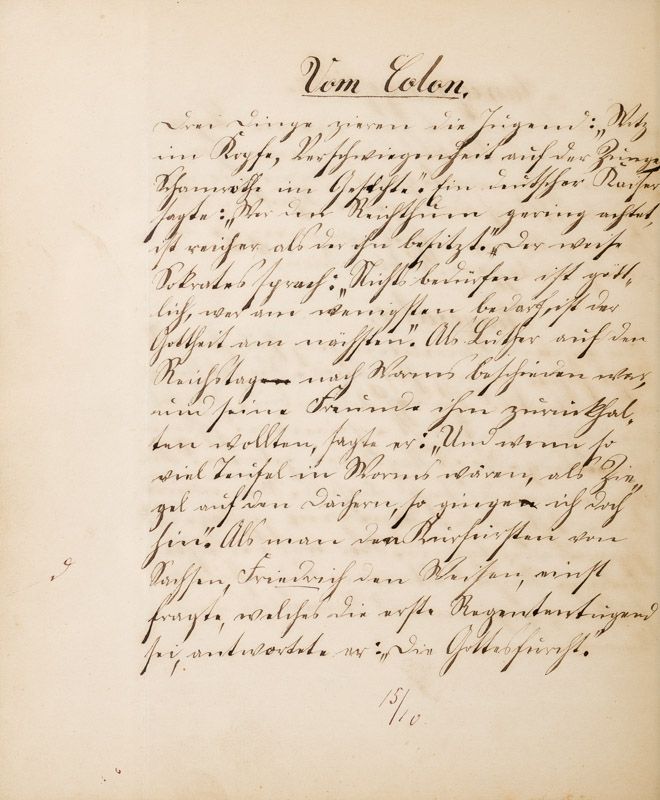 Vom Colon.
Drei Dinge zieren die Jugend: „Witz
im Kopfe, Verschwiegenheit auf der Zunge
Schamröthe im Gesichte." Ein deutscher Kaiser
sagte: „Wer den Reichthum gering achtet,
ist reicher als der ihn besitzt." Der weise
Sokrates sprach: „Nichts bedürfen ist gött-
lich, wer am wenigsten bedarf, ist der
Gottheit am nächsten." Als Luther auf den
Reichstag nach Worms beschieden war,
und seine Freunde ihn zurückhal-
ten wollten, sagte er: „Und wenn so
viel Teufel in Worms wären, als Zie-
gel auf den Dächern, so ginge ich doch
hin." Als man den Kurfürsten von
Sachsen, Friedrich den Weisen, einst
fragte, welches die erste Regententugend
sei, antwortete er: „Die Gottesfurcht."
15/10